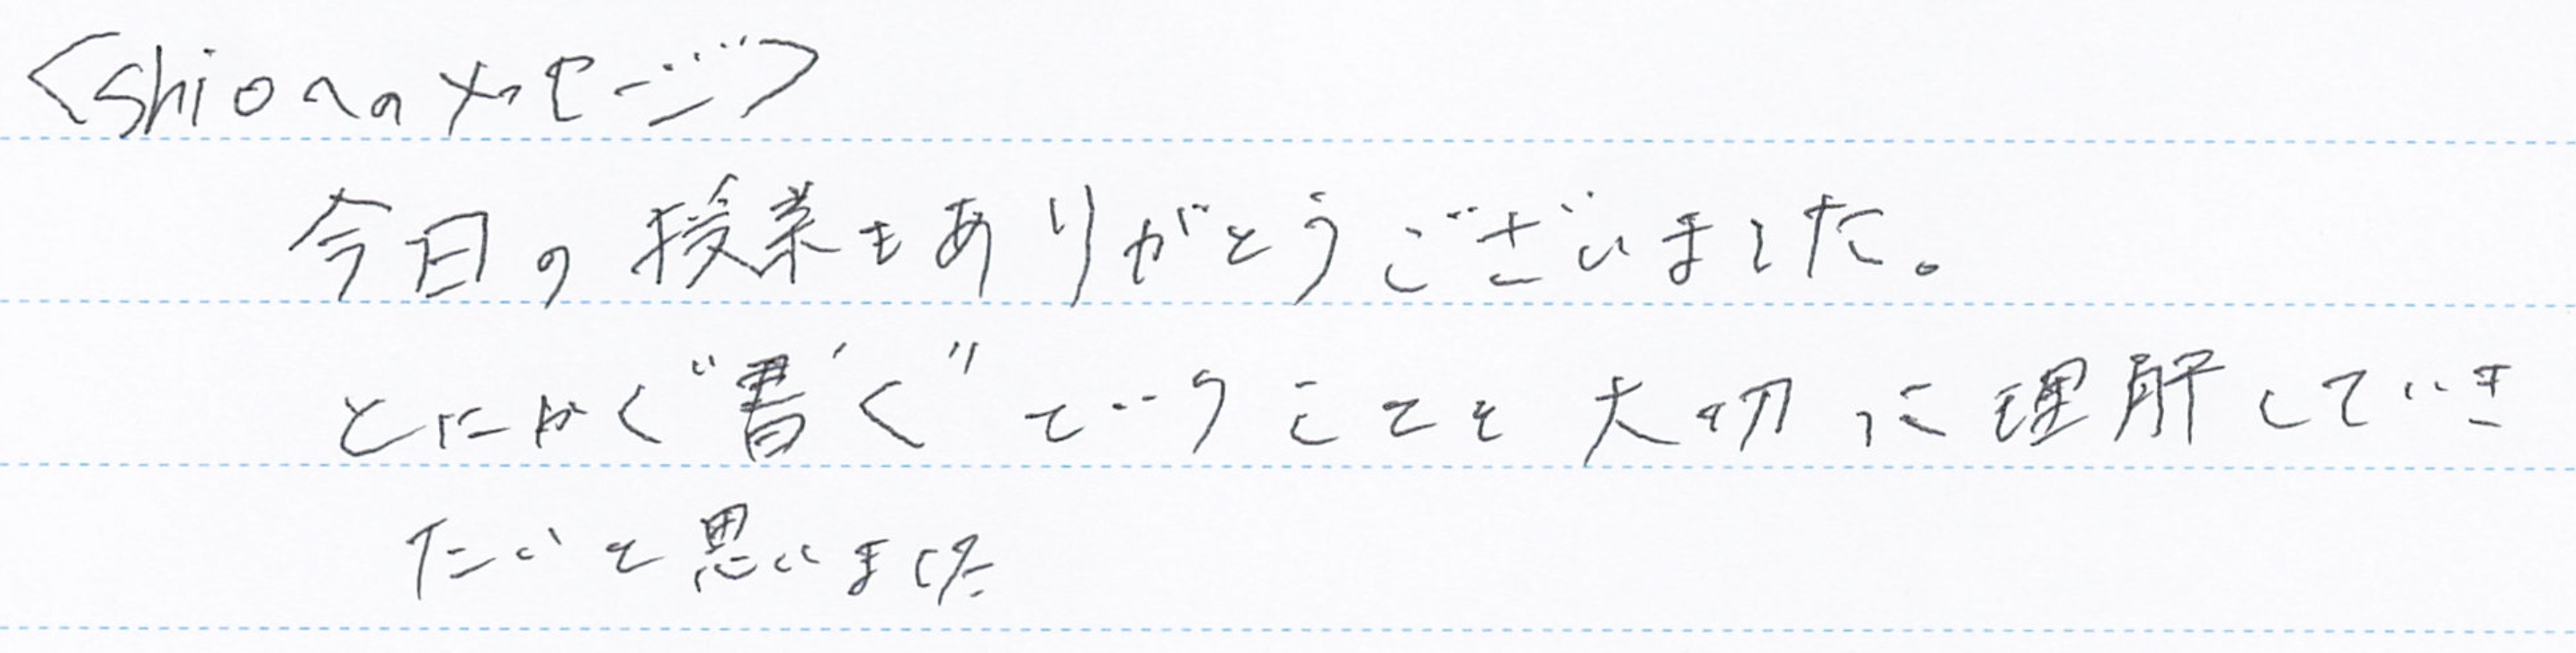 <shioへのメッセージ>
今日の授業もありがとうございました。
とにかく"書く"ということを大切に理解していき
たいと思いました